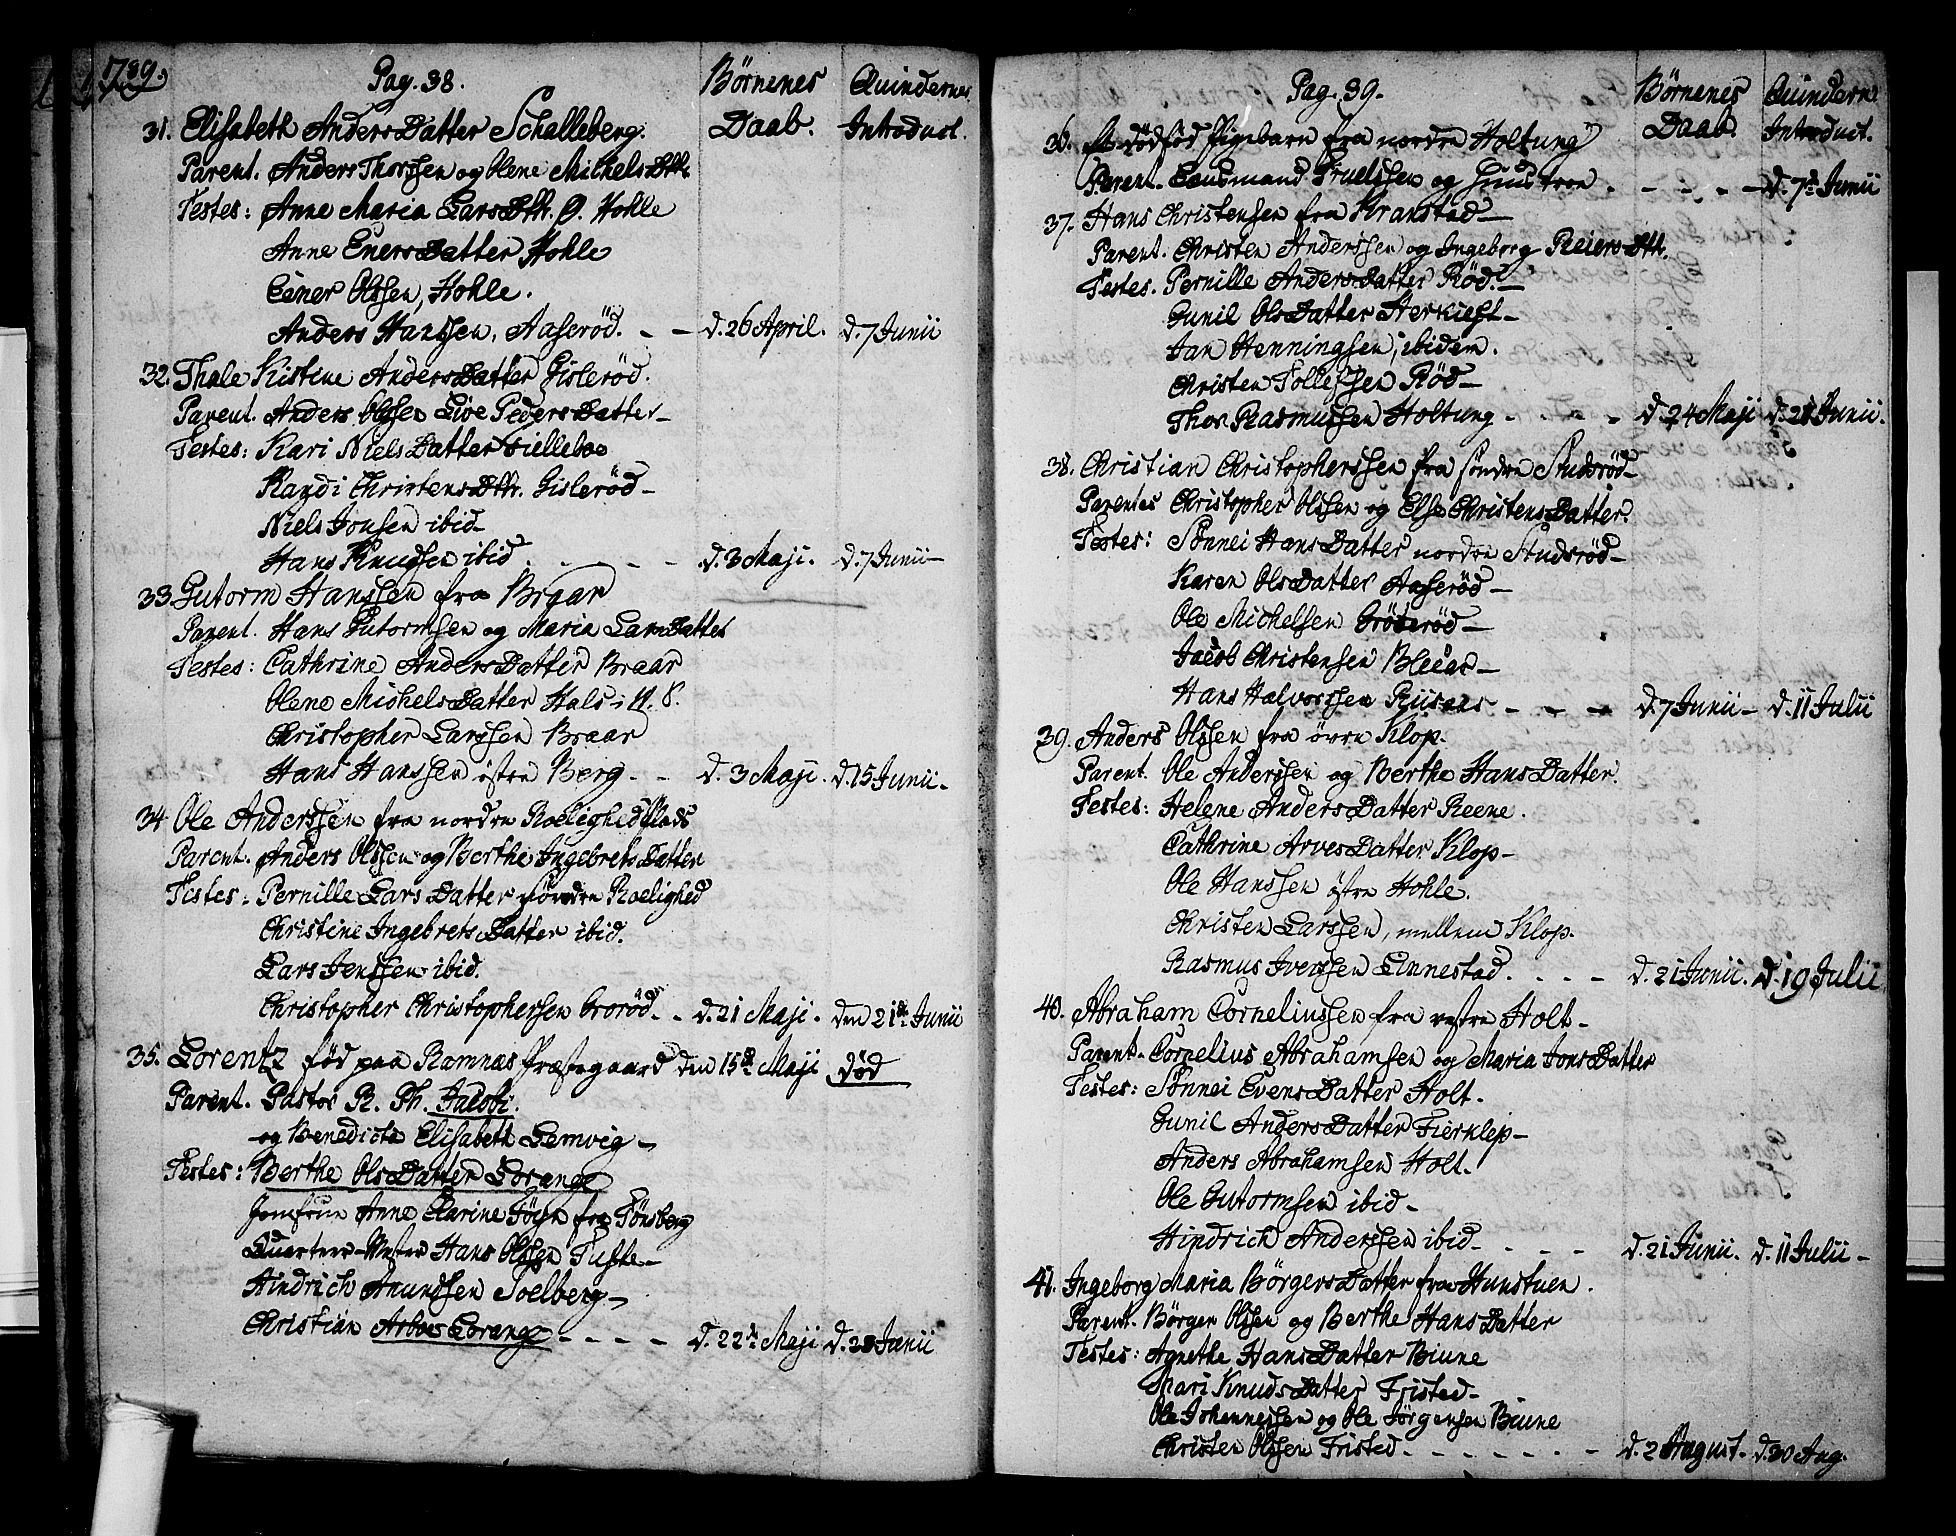 1789.
Pag. 38.
Börnenes Daab.
Quindernes Introduct.
31. Elisabeth AndersDatter Schalleberg.
Parent. Anders Thorssen og Olene MichelsDtr.
Testes: Anne Maria LarsDtr. Ø. Hohle
Anne EnersDatter Hohle
Einer Olssen, Hohle.
Anders Hanssen, Aaseröd. - - d. 26 April. d. 7 Junii
32. Thale Kistine AndersDatter Gisleröd.
Parent. Anders Olssen Live PedersDatter -
Testes: Kari NielsDatter
Randi ChristensDtr. Gisleröd -
Niels Jonsen ibid -
Hans Knudsen ibid - - - - d. 3 Maji. d. 7 Junii -
33. Gutorm Hanssen fra Braar
Parent. Hans Gutormsen og Maria LarsDatter
Testes: Cathrine AndersDatter Braar
Olene MichelsDatter Hals i
Christopher Larssen Braar
Hans Hanssen östre Berg - - d. 3 Maji. d. 15 Junii -
34. Ole Anderssen fra nordre RoelighedPlads
Parent. Anders Olssen og Berthe IngebretsDatter
Testes: Pernille LarsDatter söndre Roelighed
Christine IngebretsDatter ibid.
Lars Jenssen ibid.
Christopher Christophersen Groröd - - d. 21 Maji - den 21de Junii
35. Lorentz föd paa Ramnæs Præstegaard den 15de Maji död
Parent. Pastor R. Th. Jacobi.
og Benedicte Elisabeth Lemvig -
Testes: Berthe OlsDatter Lorange
Jomfrue Anne Clarine Föyn fra Tönsberg
Hans Olssen Tufte -
Hindrich Amundsen Solberg -
Christian Arboe Lorange - - - - d. 22de Maji d. 28 Junii
Pag. 39.
Börnenes Daab.
Quindern Introduct.
36. Et dödföd Pigebarn fra nordre Holtung
Parent. Truelssen og Huustroe - - - - d. 7de Junii
37. Hans Christensen fra Kranstad -
Parent. Christen Anderssen og Ingeborg ReiersDtr.
Testes. Pernille AndersDatter Röd. -
Gunil OlsDatter -
Jan Henningsen, ibidem.
Christen Tollefssen Röd -
Thor Rasmussen Holtung - - - - d. 24 Maji d. 28 Junii.
38. Christian Christopherssen fra söndre Studsröd -
Parentes Christopher Olssen og Else ChristensDatter.
Testes: Sönnei HansDatter nordre Studsröd -
Karen OlsDatter Aaseröd -
Ole Michelsen Gröteröd -
Jacob Christensen -
Hans Halvorssen - - - d. 7 Junii - d. 11 Julii
39. Anders Olssen fra övre Klop.
Parent. Ole Anderssen og Berthe HansDatter.
Testes: Helene AndersDatter Reene.
Cathrine ArvesDatter Klop -
Ole Hanssen östre Hohle.
Christen Larssen, mellem Klop.
Rasmus Iverssen Linnestad. - - - d. 21 Junii. d. 19 Julii
40. Abraham Corneliussen fra vestre Holt -
Parent. Cornelius Abrahamsen og Maria JonsDatter
Testes: Sönnei EvensDatter Holt.
Gunil AndersDatter Fierklep -
Anders Abrahamsen Holt.
Ole Gutormsen ibid -
Hindrich Anderssen ibid - - - - d. 21 Junii. d. 11 Julii -
41. Ingeborg Maria BörgersDatter fra Hunstuen.
Parent. Börger Olssen og Berthe HansDatter
Testes: Agnethe HansDatter Biune
Mari KnudsDatter Fristed -
Ole Johannessen og Ole Jörgensen Biune
Christen Olssen Fristed - - - - - - d. 2 August. d. 30 Aug.